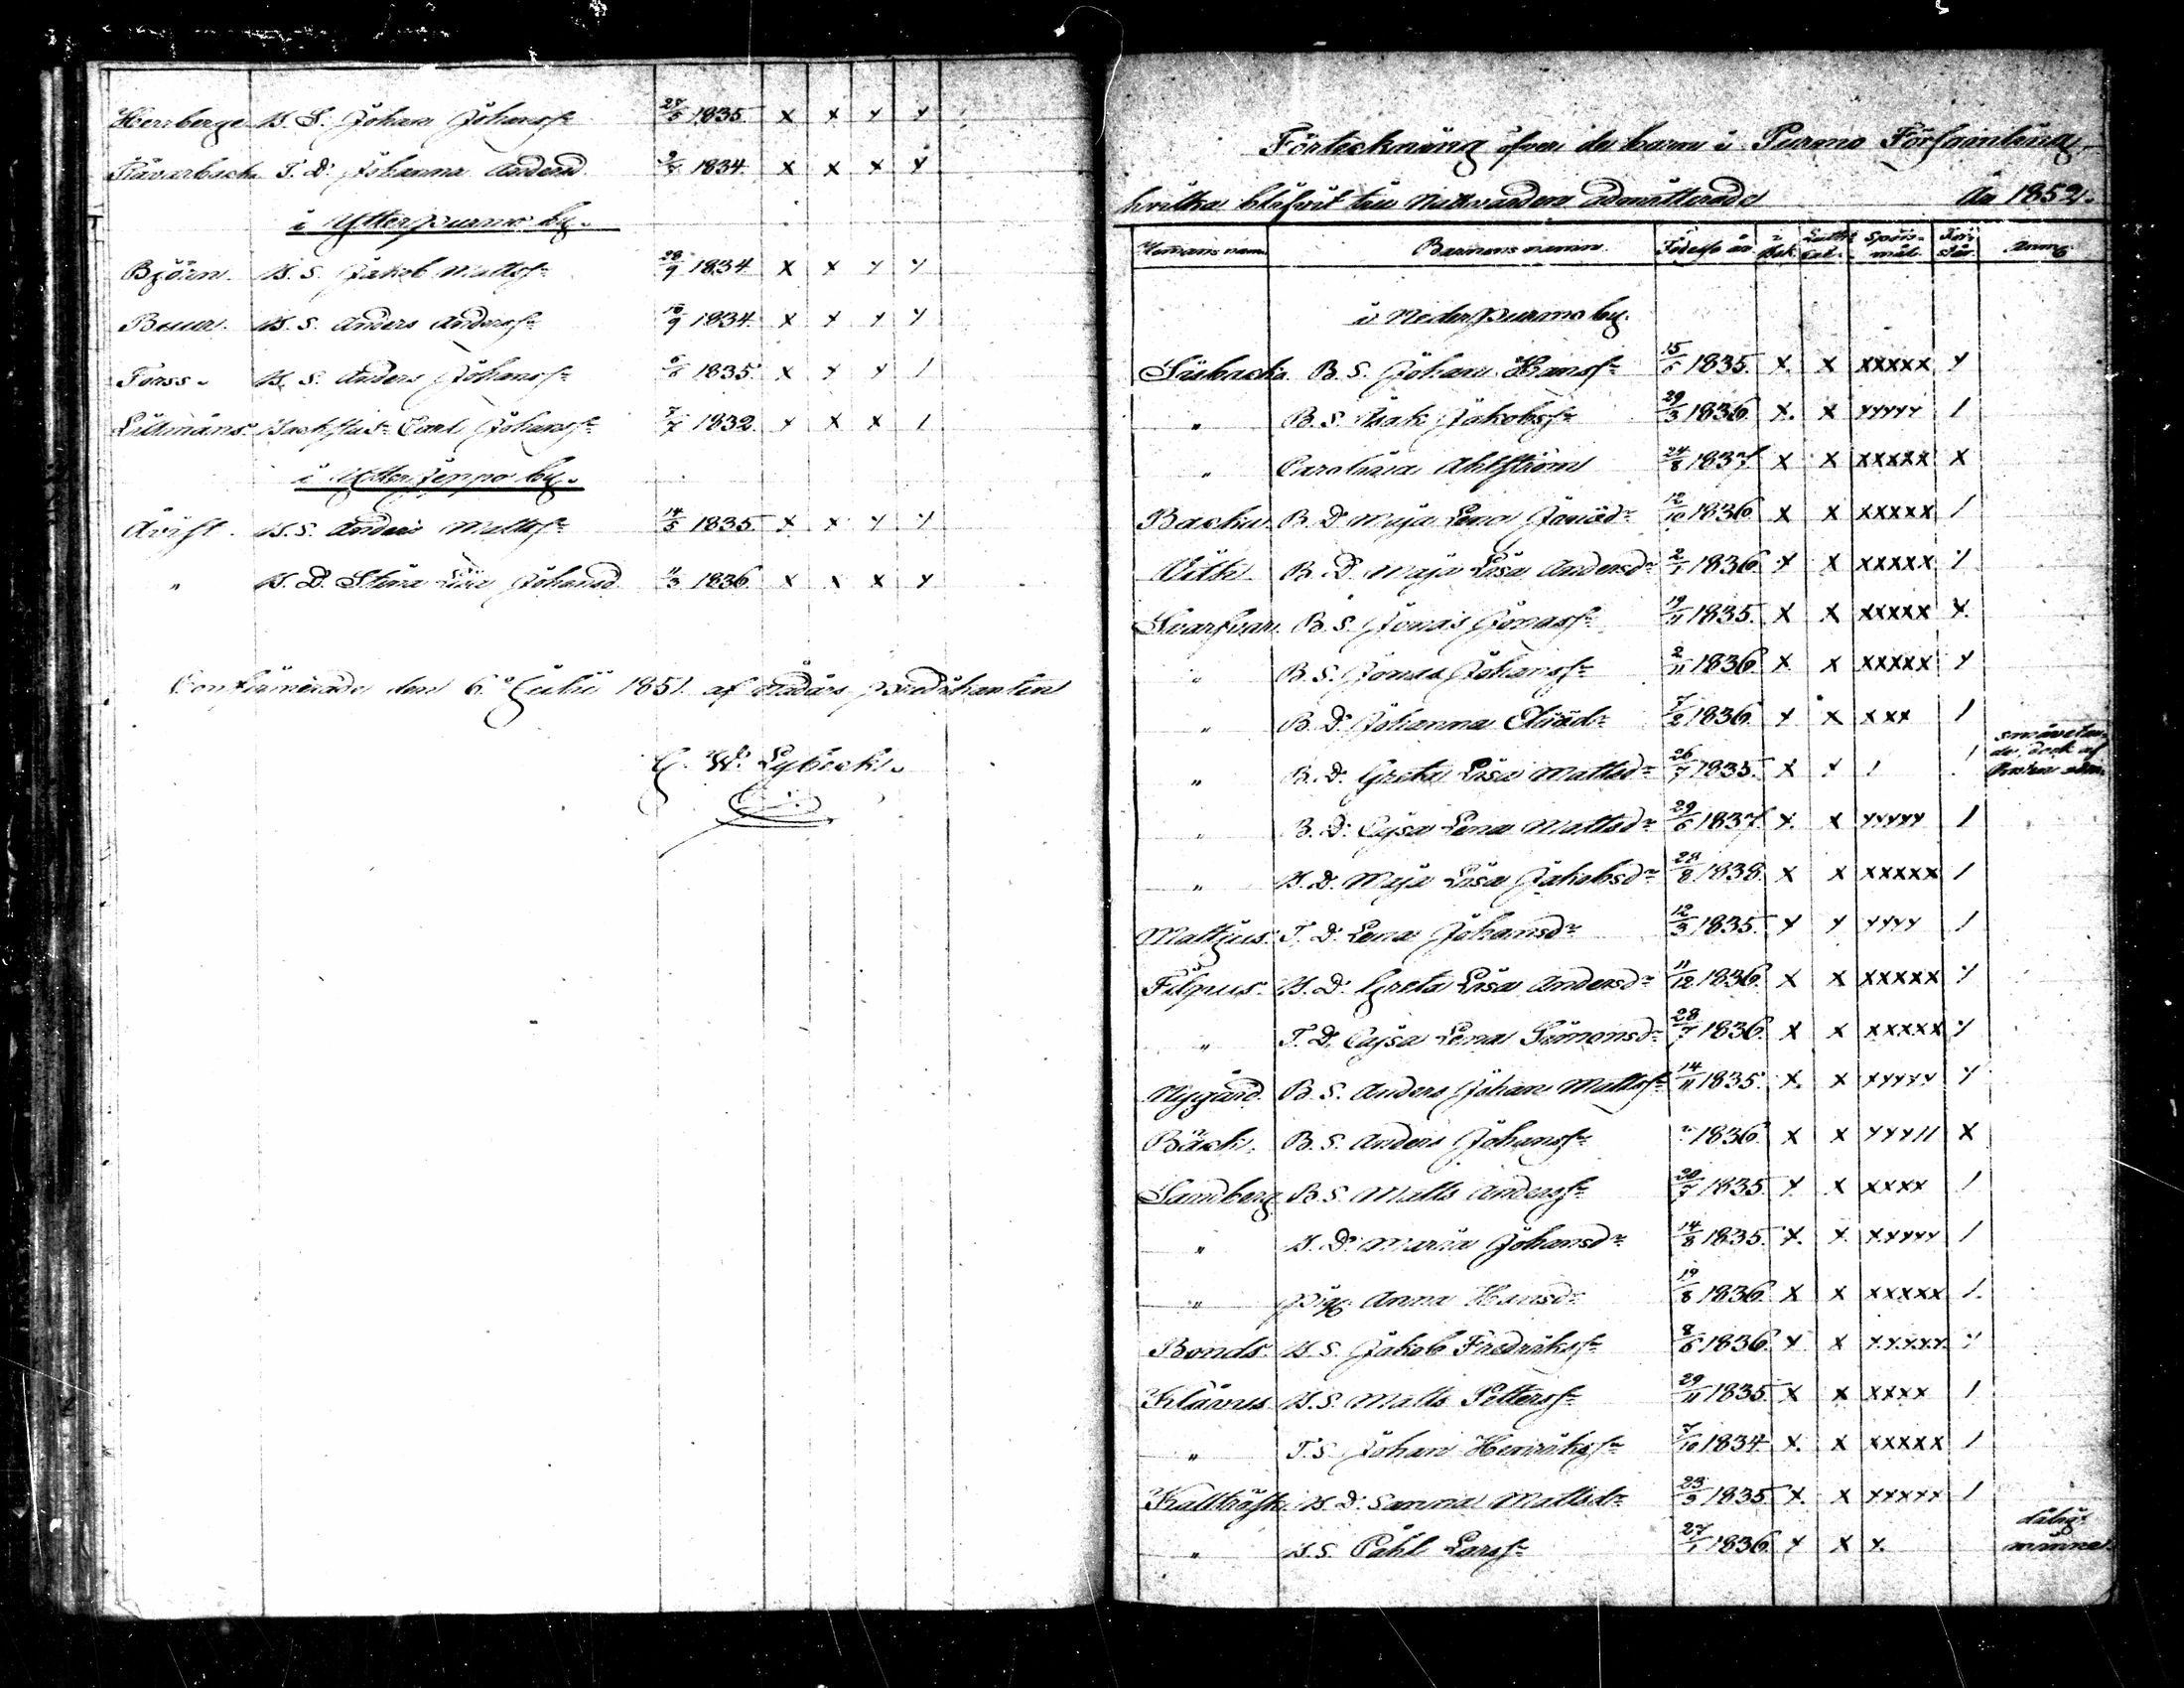 Herrberge B. S. Johan Johanss:n 24/5 1835 x x x x
T. D. Johanna Andersd. 1834 x x x x
i Ytterpurmo by.
Björn. B. S. Jakob Mattss:n 28/9 1834 x x x x
B. S. Anders Anderss:n 10/9 1834 x x x x
Forss. B. S. Anders Johanss:n 1835 x x x /
Johanss:n 1832 x x x /
i Ytterjeppo by.
B. S. Anders Mattss:n 14/5 1835 x x x x
" B. D. Stina Lisa Johansd. 11/3 1836 x x x x
Confirmerade den 6:e Julii 1851 af predikanten
Lybeck.
Förteckning öfver de barn i Purmo Församling
hvilka blifvit till Nattvarden admitterade År 1852.
Hemmans namn. Barnens namn. Födelse år. i Bok. Luth. Cat. Spörs-mål. För-står. Anm:
i Nederpurmo by.
Sisbacka B. S. Johan Hanss:n 15/5 1835. x. x xxxxx x
" B. S. Isak Jakobss:n 29/3 1836 x. x xxxxx /
" Carolina Ahlström 24/8 1837 x x xxxxx x
Backa B. D. Maja Lena 12/10 1836 x x xxxxx /
B. D. Maja Lisa Andersd:r 1836 x x xxxxx x
Svarfvar. B. S. Jonas Jonass:n 19/11 1835. x x xxxxx x.
" B. S. Jonas Johanss:n 2/11 1836 x x xxxxx x
" B. D. Johanna Eliäd:r 7/2 1836 x x xxx /
" B. D. Greta Lisa Mattsd:r 26/7 1835. x x / /
" B. D. Cajsa Lena Mattsd:r 29/6 1837 x. x xxxxx /
" B. D. Maja Lisa Jakobsd:r 28/8 1838 x x xxxxx /
Mattjus. T. D. Lena Johansd:r 12/3 1835. x x xxxx /
Filpus. B. D. Greta Lisa Andersd:r 11/12 1836. x x xxxxx x
" T. D. Cajsa Lena Simonsd:r 28/7 1836. x x xxxxx x
Nygård. B. S. Anders Johan Mattss:n 14/11 1835. x. x xxxxx x
Bäck. B. S. Anders Johanss:n " 1836 x x xxx// x
Sandberg. B. S. Matts Anderss:n 20/7 1835. x x xxxx /
" B. D. Maria Johansd:r 14/8 1835. x. x xxxxx /
" pig. Anna Hansd:r 19/8 1836. x x xxxxx /.
Bonds. B. S. Jakob Fredrikss:n 8/6 1836. x x xxxxx x
Klavus B. S. Matts Petterss:n 29/11 1835 x x xxxx /
" T. S. Johan Henrikss:n 7/10 1834 x. x xxxxx /
Kallträsk. B. D. Sanna Mattsd:r 23/3 1835 x. x xxxxx /
" B. S. Påhl Larss:n 27/1 1836. x x x. dålig minne